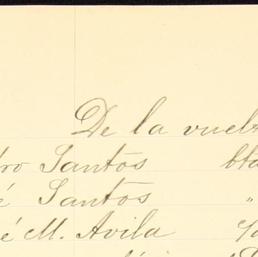 De la vuelt
dro Santos bta
é Santos "
é M. Avila